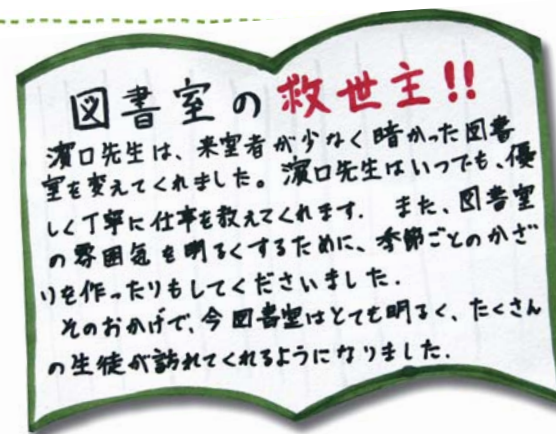 図書室の救世主!!
濵口先生は、来室者が少なく暗かった図書
室を変えてくれました。濵口先生はいつでも、優
しく丁寧に仕事を教えてくれます. また、図書室
の雰囲気を明るくするために、季節ごとのかざ
りを作ったりもしてくださいました.
そのおかげで、今図書室はとても明るく、たくさん
の生徒が訪れてくれるようになりました.